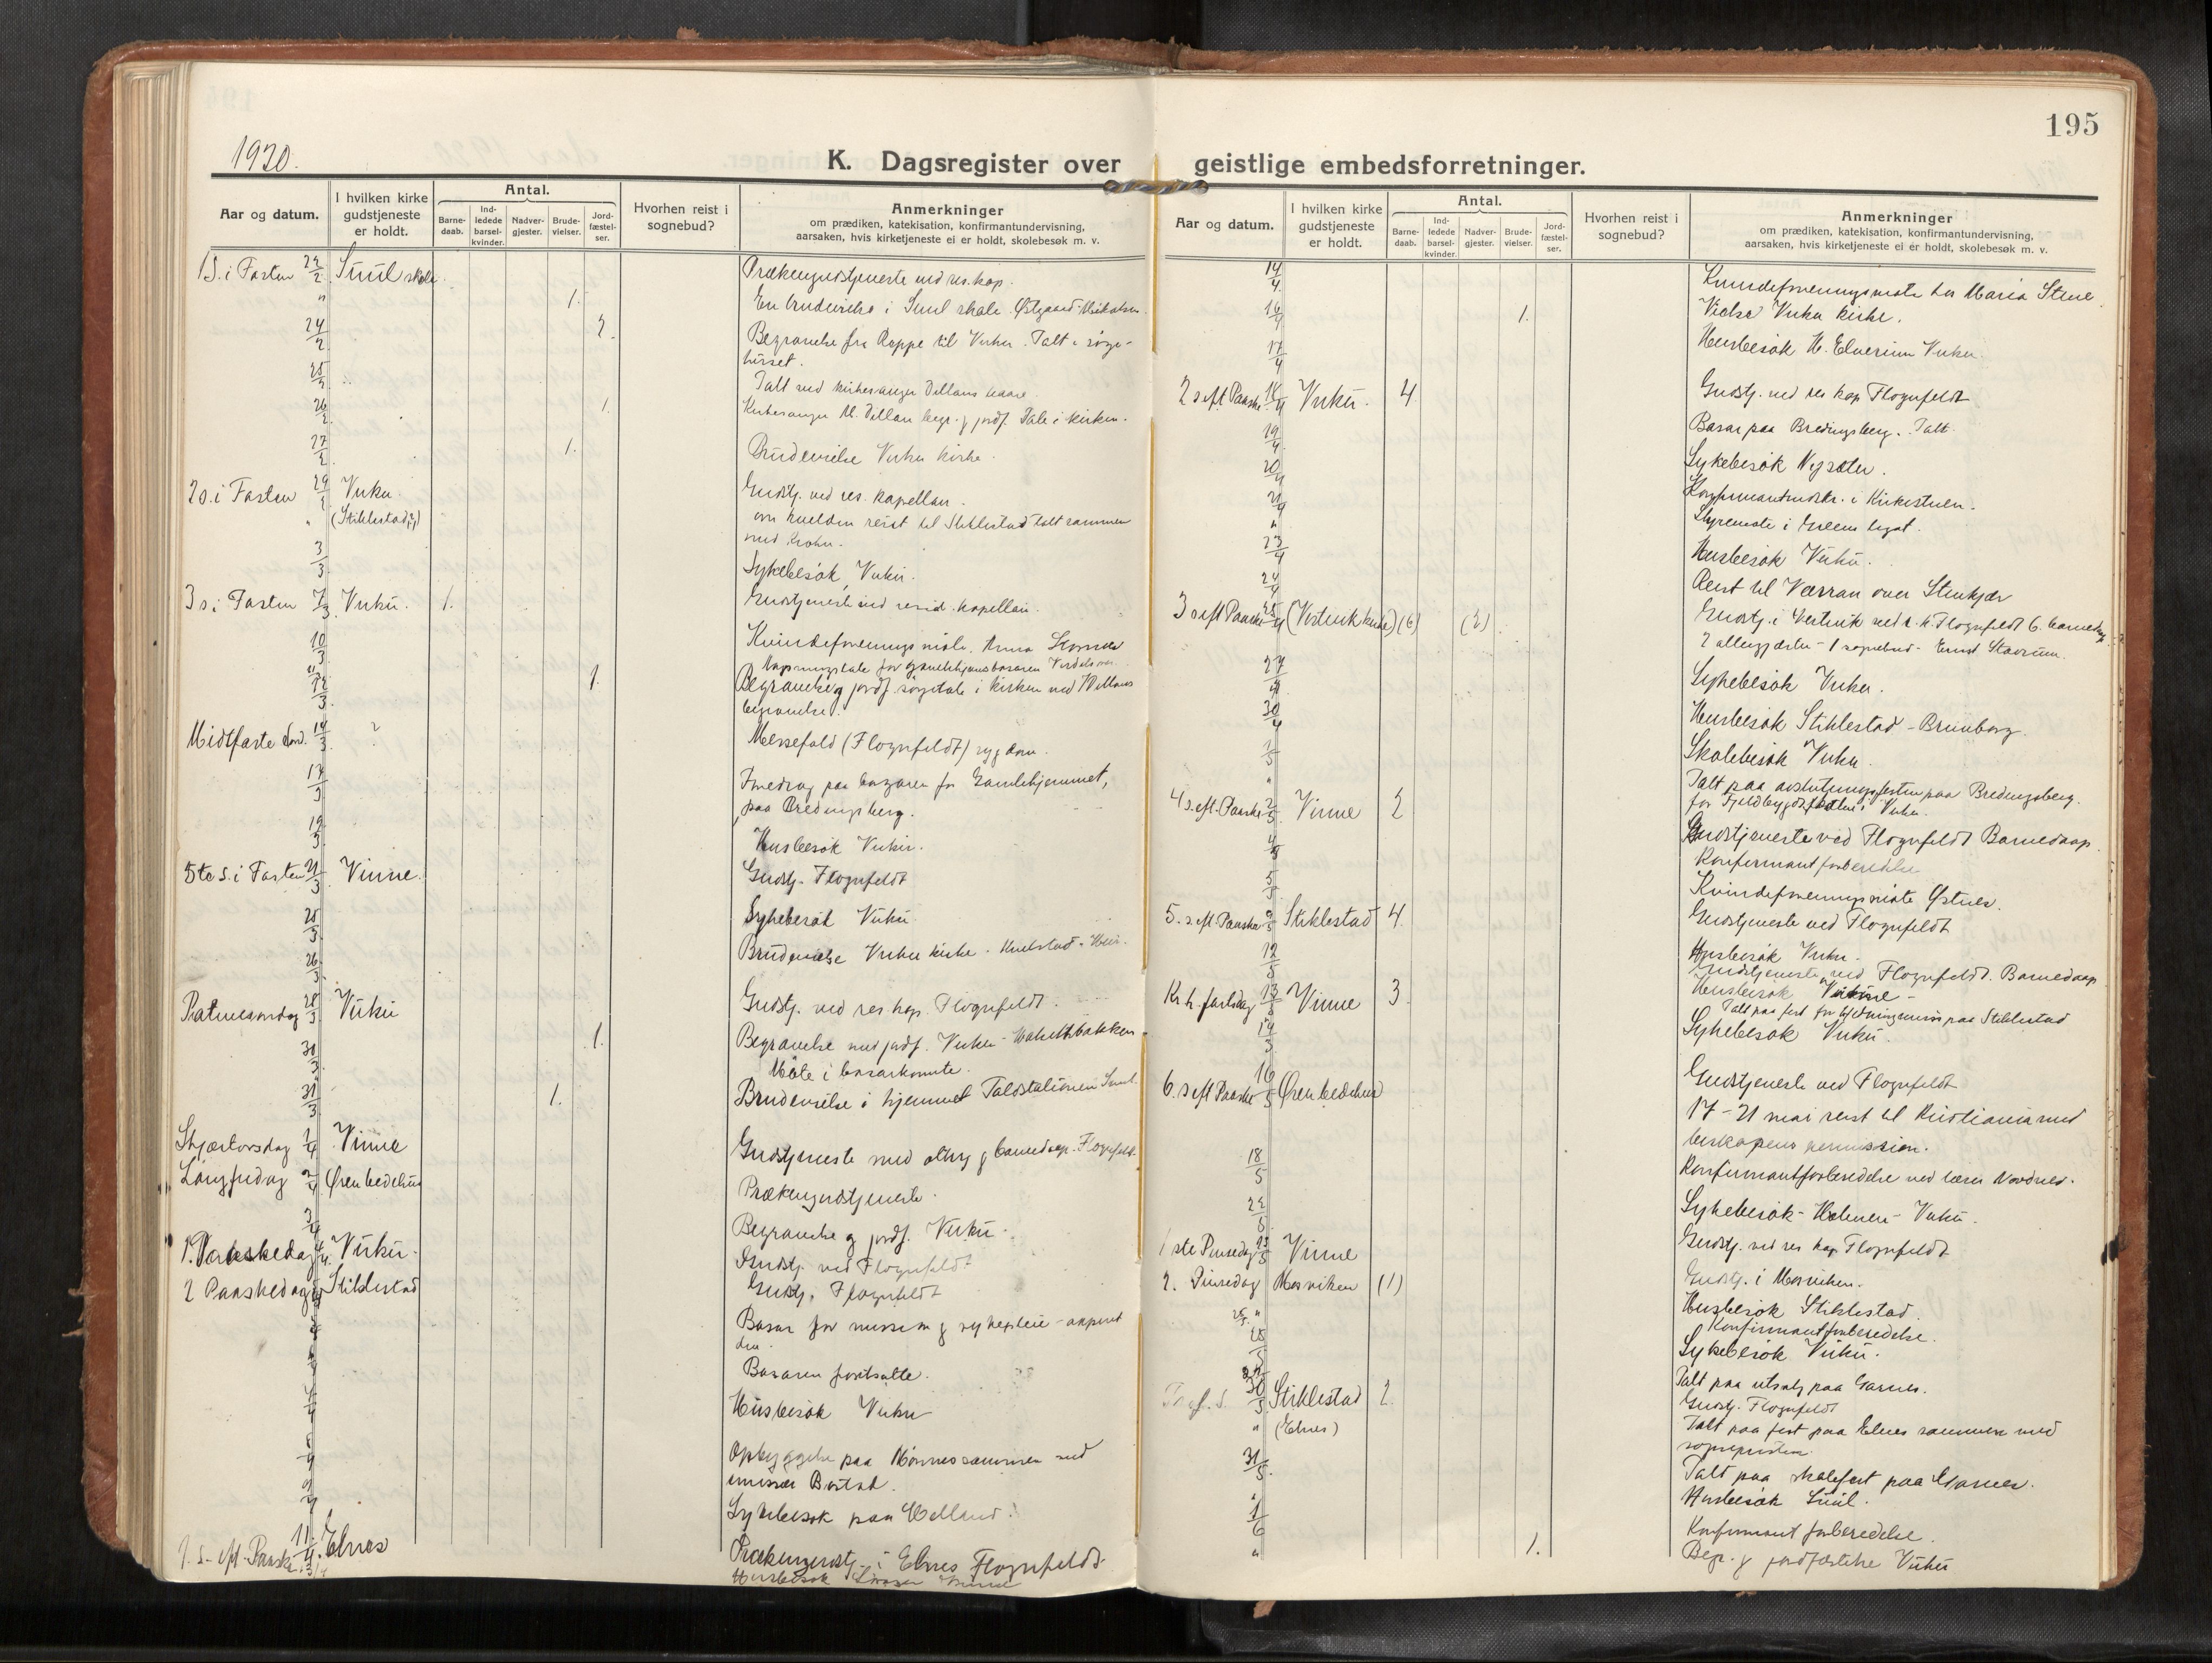 195
1920.
K. Dagsregister over geistlige embedsforretninger.
Aar og datum.
I hvilken kirke gudstjeneste er holdt.
Antal.
Barne-daab.
Ind-ledede barsel-kvinder.
Nadver-gjester.
Brude-vielser.
Jord-fæstel-ser.
Hvorhen reist i sognebud?
Anmerkninger
om prædiken, katekisation, konfirmantundervisning,
aarsaken, hvis kirketjeneste ei er holdt, skolebesøk m. v.
1 S. i Fasten 22/2 Suul skole Prækengudstjeneste ved res. kap.
" 1. En brudevielse i Suul skole.
24/2 2. Begravelse fra til Vuku. Talt i sørge-
huset.
25/2 Talt ved kirkesanger Dillans baare.
26/2 1. Kirkesanger M. Dillan begr. g jordf. Tale i kirken.
27/2 1. Brudevielse Vuku kirke.
2 s. i Fasten 29/2 Vuku. Gudstj. ved res. kapellan.
" (Stiklestad) om kvelden reist til Stiklestad talt sammen
med Krohn.
3/3 Sykebesøk Vuku.
3 s. i Fasten 7/3 Vuku. 1. Gudstjeneste ved resid. kapellan.
10/3 Kvindeforeningsmøte. Anna
11/3
12/3 1. Begravelse g jordf. sørgetale i kirken ved
begravelse.
Midtfaste sønd. 14/3 ? Messefald (Flognfeldt) sygdom.
17/3 Foredrag paa bazaren for Gamlehjemmet,
paa Bredingsberg.
19/3 Husbesøk Vuku.
5te s. i Fasten 21/3 Vinne. Gudstj. Flognfeldt
25/3 Sykebesøk Vuku
26/3 Brudevielse Vuku kirke.
Palmesøndag 28/3 Vuku Gudstj. ved res kap. Flognfeldt.
30/3 1. Begravelse med jordf. Vuku
Møte i basarkomite.
31/3 1. Brudevielse i hjemmet Toldstationen Suul.
Skjærtorsdag 1/4 Vinne Gudstjeneste med altrg. g barnedaap. Flognfeldt
Langfredag 2/4 Øren bedehus Prækengudstjeneste.
3/4 Begravelse g jordf. Vuku.
1. Paaskedag 4/4 Vuku. Gudstj. ved Flognfeldt
2 Paaskedag Stiklestad Gudstj. Flognfeldt
Basar for mission g sykepleie - aapnet
den.
Basaren fortsatte.
Husbesøk Vuku
Opbyggelse paa med
emissær
Sykebesøk paa
1. s. eft. Paaske 11/4 Elnes Prækengudstj. i Elnes Flognfeldt.
Husbesøk
Aar og datum.
I hvilken kirke gudstjeneste er holdt.
Antal.
Barne-daab.
Ind-ledede barsel-kvinder.
Nadver-gjester.
Brude-vielser.
Jord-fæstel-ser.
Hvorhen reist i sognebud?
Anmerkninger
om prædiken, katekisation, konfirmantundervisning,
aarsaken, hvis kirketjeneste ei er holdt, skolebesøk m. v.
14/4 Kvindeforeningsmøte hos Maria Stene.
16/4 1. Vielse Vuku kirke.
17/4 Husbesøk H. Elverum Vuku.
2 s eft Paaske 18/4 Vuku. 4. Gudstj. ved res kap Flognfeldt
19/4 Basar paa Bredingsberg. Talt.
20/4 Sykebesøk
21/4 i Kirkestuen.
" Styremøte i legat.
23/4 Husbesøk Vuku.
24/4 Reist til Værran over Stenkjær
3 s eft Paaske 25/4 (Vestvik kirke) (6) (2) Gudstj. i Vestvik ved r. k. Flognfeldt 6 barnedaap
2 altergjæster - 1 sognebud -
27/4 Sykebesøk Vuku.
30/4 Husbesøk Stiklestad - Brunborg.
1/5 Skolebesøk Vuku.
" Talt paa avslutningsfesten paa Bredingsberg.
for i Vuku.
4 s. eft. Paaske 2/5 Vinne 2 Gudstjeneste ved Flognfeldt Barnedaap.
4/5 Konfirmantforberedelse
5/5 Kvindeforeningsmøte Østnes.
5. s eft. Paaske 9/5 Stiklestad 4. Gudstjeneste ved Flognfeldt
12/5 Husbesøk Vuku.
Kr. h. fartsdag 13/5 Vinne 3. Gudstjeneste ved Flognfeldt. Barnedaap
Husbesøk Vinne -
Talt paa fest for paa Stiklestad
14/5 Sykebesøk Vuku.
6. s eft Paaske 16/5 Øren bedehus Gudstjeneste ved Flognfeldt
17-21 mai reist til Kristiania med
beskapens permission.
18/5 Konfirmantforberedelse ved lærer Nordnes.
22/5 Sykebesøk - - Vuku.
1ste Pinsedag 23/5 Vinne Gudstj. ved res kap. Flognfeldt
2. Pinsedag (1) Gudstj. i
25/5 " Husbesøk Stiklestad.
Konfirmantforberedelse.
28/5 Sykebesøk Vuku.
Talt paa utsalg paa Garnes.
30/5 Stiklestad 2. Gudstj. Flognfeldt
" (Elnes) Talt paa fest paa Elnes sammen med
sognepresten.
31/5 Talt paa skolefest paa Garnes.
" Husbesøk Suul.
1/6 Konfirmantforberedelse.
" 1. Begr. g jordfæstelse Vuku